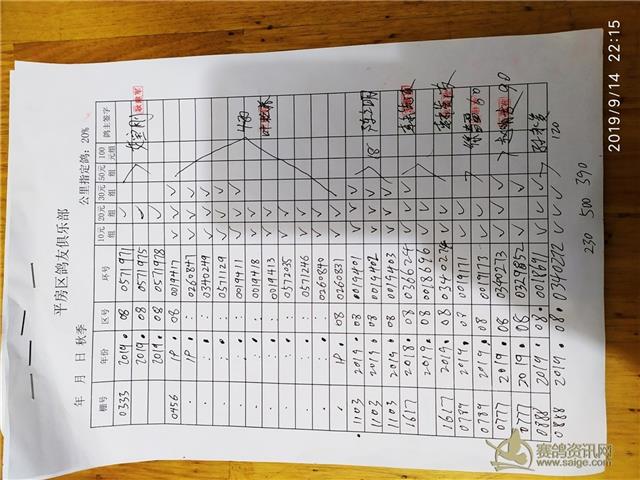 平房区鸽友俱乐部
年 月 日 秋季 公里指定鸽：20%
棚号 年份 区号 环号 10元组 20元组 30元组 50元组 100元组 鸽主签字
0333 2019. 08 0571971 ✓ ✓ ✓
2019. 08 0571975 ✓
2019. 08 0571978 ✓ ✓
0456 19. 08 0019417 ✓ ✓ ✓ ✓
19. 0260847 ✓ ✓ ✓
0340249 ✓ ✓ ✓
0371129 ✓ ✓ ✓
0019411 ✓ ✓
0019418 ✓ ✓ 420
0019413 ✓ ✓
0372035 ✓
0371246 ✓
0260840 ✓
19. 08 0260837 ✓ ✓ ✓
1103 2019. 08 0019401 ✓ ✓ ✓
1103 2019. 08 0019402 ✓ ✓ ✓
1103 2019. 08 0019403 ✓ ✓ ✓
1617 2018. 08 0366624 ✓ ✓
2019. 08 0018696 ✓ ✓
1617 2019. 08 0340274 ✓ ✓ ✓
0789 2019. 08 0019171 ✓ ✓
0789 2019. 08 0019173 ✓ ✓
0777 2019. 08 0340273 ✓ ✓ ✓
0777 2019. 08 0329852 ✓ ✓ 90
0888 2019. 08. 0018691 ✓ ✓ ✓
0888 2019. 08. 0340272 ✓ ✓ ✓ 120
230 500 390
2019/9/14 22:15
赛鸽资讯网
www.saige.com